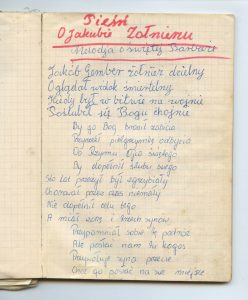 Pieśń
O Jakubie Żołnierzu
Melodja o świętej Barbarze
Jakób Gember żołnierz dzielny
Oglądał widok śmiertelny
Kiedy był w bitwie na wojnie
Poślubił się Bogu hojnie
By go Bóg bronił
pielgrzymkę odbycia
Do Rzymu Ojca świętego
By dopełnił ślubu swego
Sto lat przeżył był zgrzybiały
Chorował przez czas niemały
Nie dopełnił celu tego
A miał żonę i trzech synów
Przypominał sobie tę podróż
Ale posłać nam tu kogoś
Przywołuje syna przecie
Chce go posłać na swe miejsce